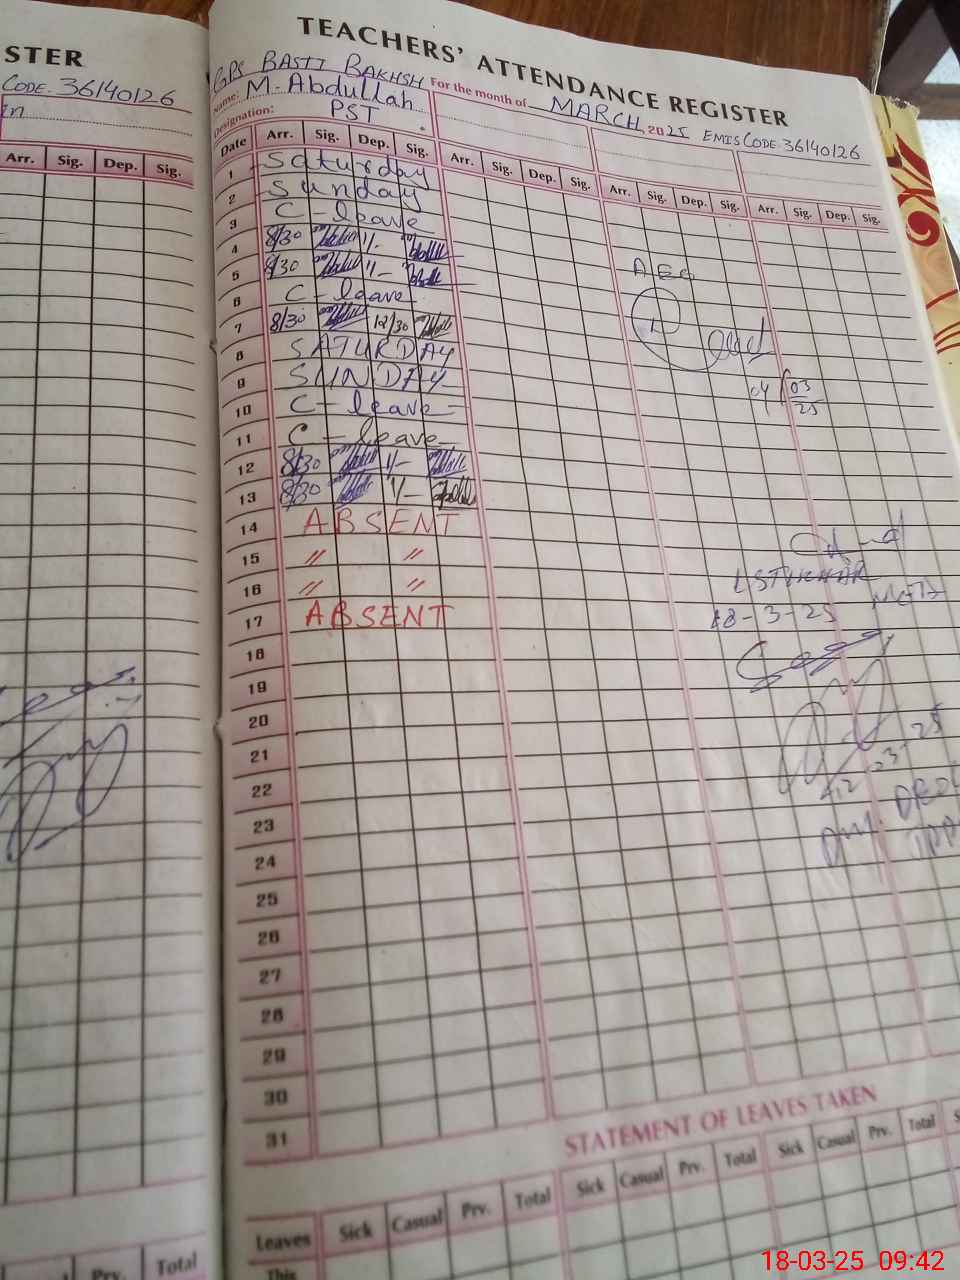 STER
CODE. 36140126
Arr. Sig. Dep. Sig.
TEACHERS' ATTENDANCE REGISTER
GPS BASTI BAKHSH For the month of MARCH, 2025 EMIS CODE. 36140126
Name: M. Abdullah
Designation: PST
Date Arr. Sig. Dep. Sig. Arr. Sig. Dep. Sig. Arr. Sig. Dep. Sig. Arr. Sig. Dep. Sig.
1 Saturday
2 Sunday
3 C-leave
4 8/30 1/-
5 8/30 1/-
6 C-leave
7 8/30 12/30
8 SATURDAY
9 SUNDAY
10 C-leave-
11 C-leave-
12 8/30 1/-
13 8/30 1/-
14 ABSENT
15 〃 〃
16 〃 〃
17 ABSENT
18
19
20
21
22
23
24
25
26
27
28
29
30
31
04/03/25
18-3-25
STATEMENT OF LEAVES TAKEN
Leaves Sick Casual Prv. Total Sick Casual Prv. Total Sick Casual Prv. Total
This
Prv. Total
18-03-25 09:42